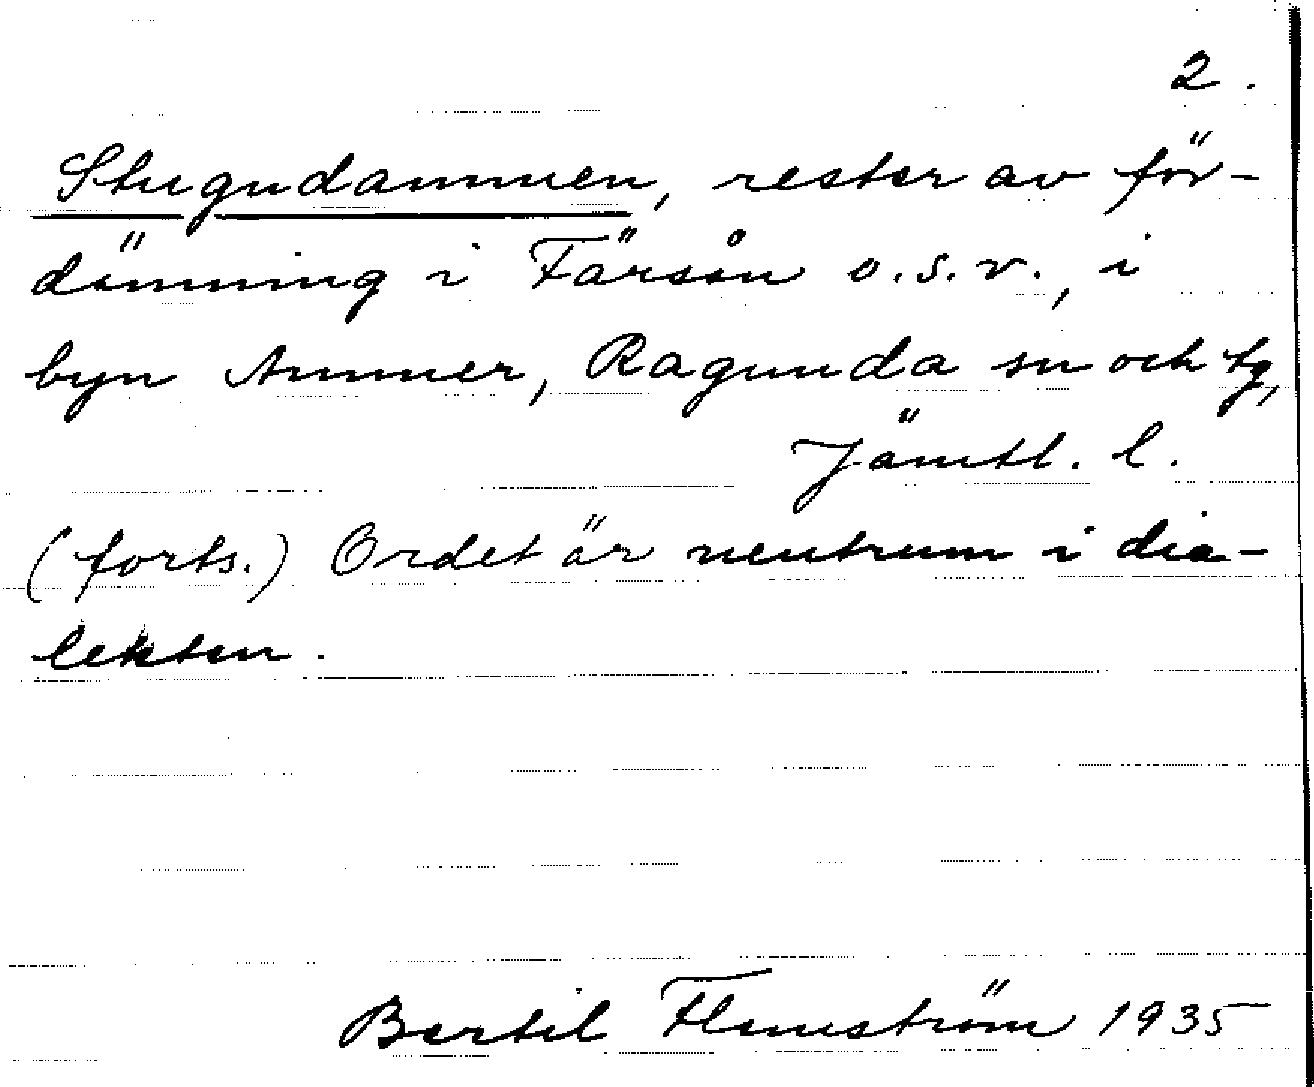 2.
Stugudammen, rester av för-
dämning i Färsån o.s.v., i
byn Ammer, Ragunda sn och tg,
Jämtl. l.
(forts.) Ordet är neutrum i dia-
lekten.
Bertil Flemström 1935